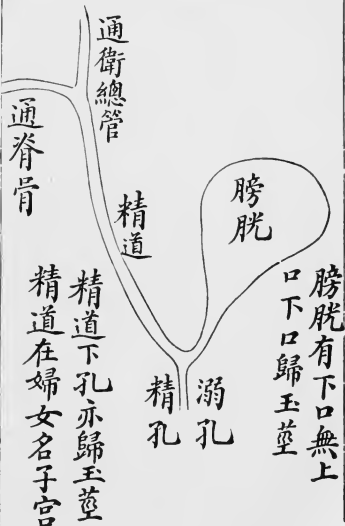 通衛總管
通脊骨
精道
膀胱
膀胱有下口無上
口下口歸玉莖
溺孔
精孔
精道下孔亦歸玉莖
精道在婦女名子宮